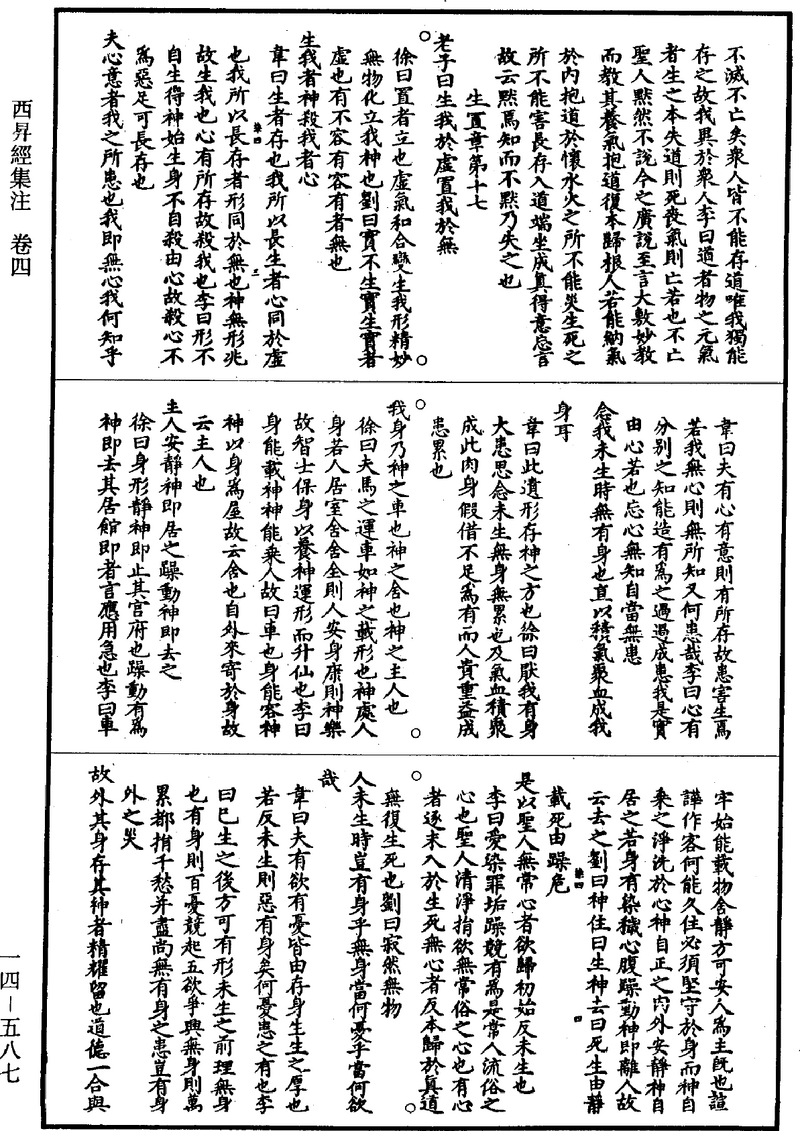 西昇經集注　卷四
不滅不亡矣衆人皆不能存道唯我獨能
存之故我異於衆人李曰道者物之元氣
者生之本失道則死喪氣則亡若也不亡
聖人黙然不說今之廣說至言大敷妙教
而教其養氣抱道復本歸根人若能納氣
於內抱道於懷水火之所不能災生死之
所不能害長存入道端坐成真得意忘言
故云黙焉知而不黙乃失之也
生置章第十七
老子曰生我於虛置我於無
徐曰置者立也虛氣和合變生我形精妙
無物化立我神也劉曰實不生實生實者
虛也有不容有容有者無也
生我者神殺我者心
韋曰生者存也我所以長生者心同於虛
也我所以長存者形同於無也神無形兆
故生我也心有所存故殺我也李曰形不
自生得神始生身不自殺由心故殺心不
爲惡足可長存也
夫心意者我之所患也我即無心我何知乎
韋曰夫有心有意則有所存故患害生焉
若我無心則無所知又何患哉李曰心有
分別之知能造有爲之過過成患我是實
由心若也忘心無知自當無患
念我未生時無有身也直以積氣聚血成我
身耳
韋曰此遺形存神之方也徐曰猒我有身
大患思念未生無身無累也及氣血積聚
成此肉身假借不足爲有而人貴重益成
患累也
我身乃神之車也神之舍也神之主人也
徐曰夫馬之運車如神之載形也神處人
身若人居室舍舍全則人安身康則神樂
故智士保身以養神運形而升仙也李曰
身能載神神能乘人故曰車也身能容神
神以身爲屋故云舍也自外來寄於身故
云主人也
主人安靜神即居之躁動神即去之
徐曰身形靜神即止其宫府也躁動有爲
神即去其居館即者言應用急也李曰車
牢始能載物舍靜方可安人爲主旣也諠
譁作客何能久住必須堅守於身而神自
乘之淨洗於心神自正之內外安靜神自
居之若身有染穢心腹躁動神即離人故
云去之劉曰神住曰生神去曰死生由靜
載死由躁危
是以聖人無常心者欲歸初始反未生也
李曰愛染罪垢躁競有爲是常人流俗之
心也聖人清淨捐欲無常俗之心也有心
者逐末入於生死無心者反本歸於真道
無復生死也劉曰寂然無物
人未生時豈有身乎無身當何憂乎當何欲
哉
韋曰夫有欲有憂皆由存身生生之厚也
若反未生則惡有身矣何憂患之有也李
曰已生之後方可有形未生之前理無身
也有身則百憂競起五欲爭興無身則萬
累都捐千愁并盡尚無有身之患豈有身
外之災
故外其身存其神者精耀留也道德一合與
一四—五八七